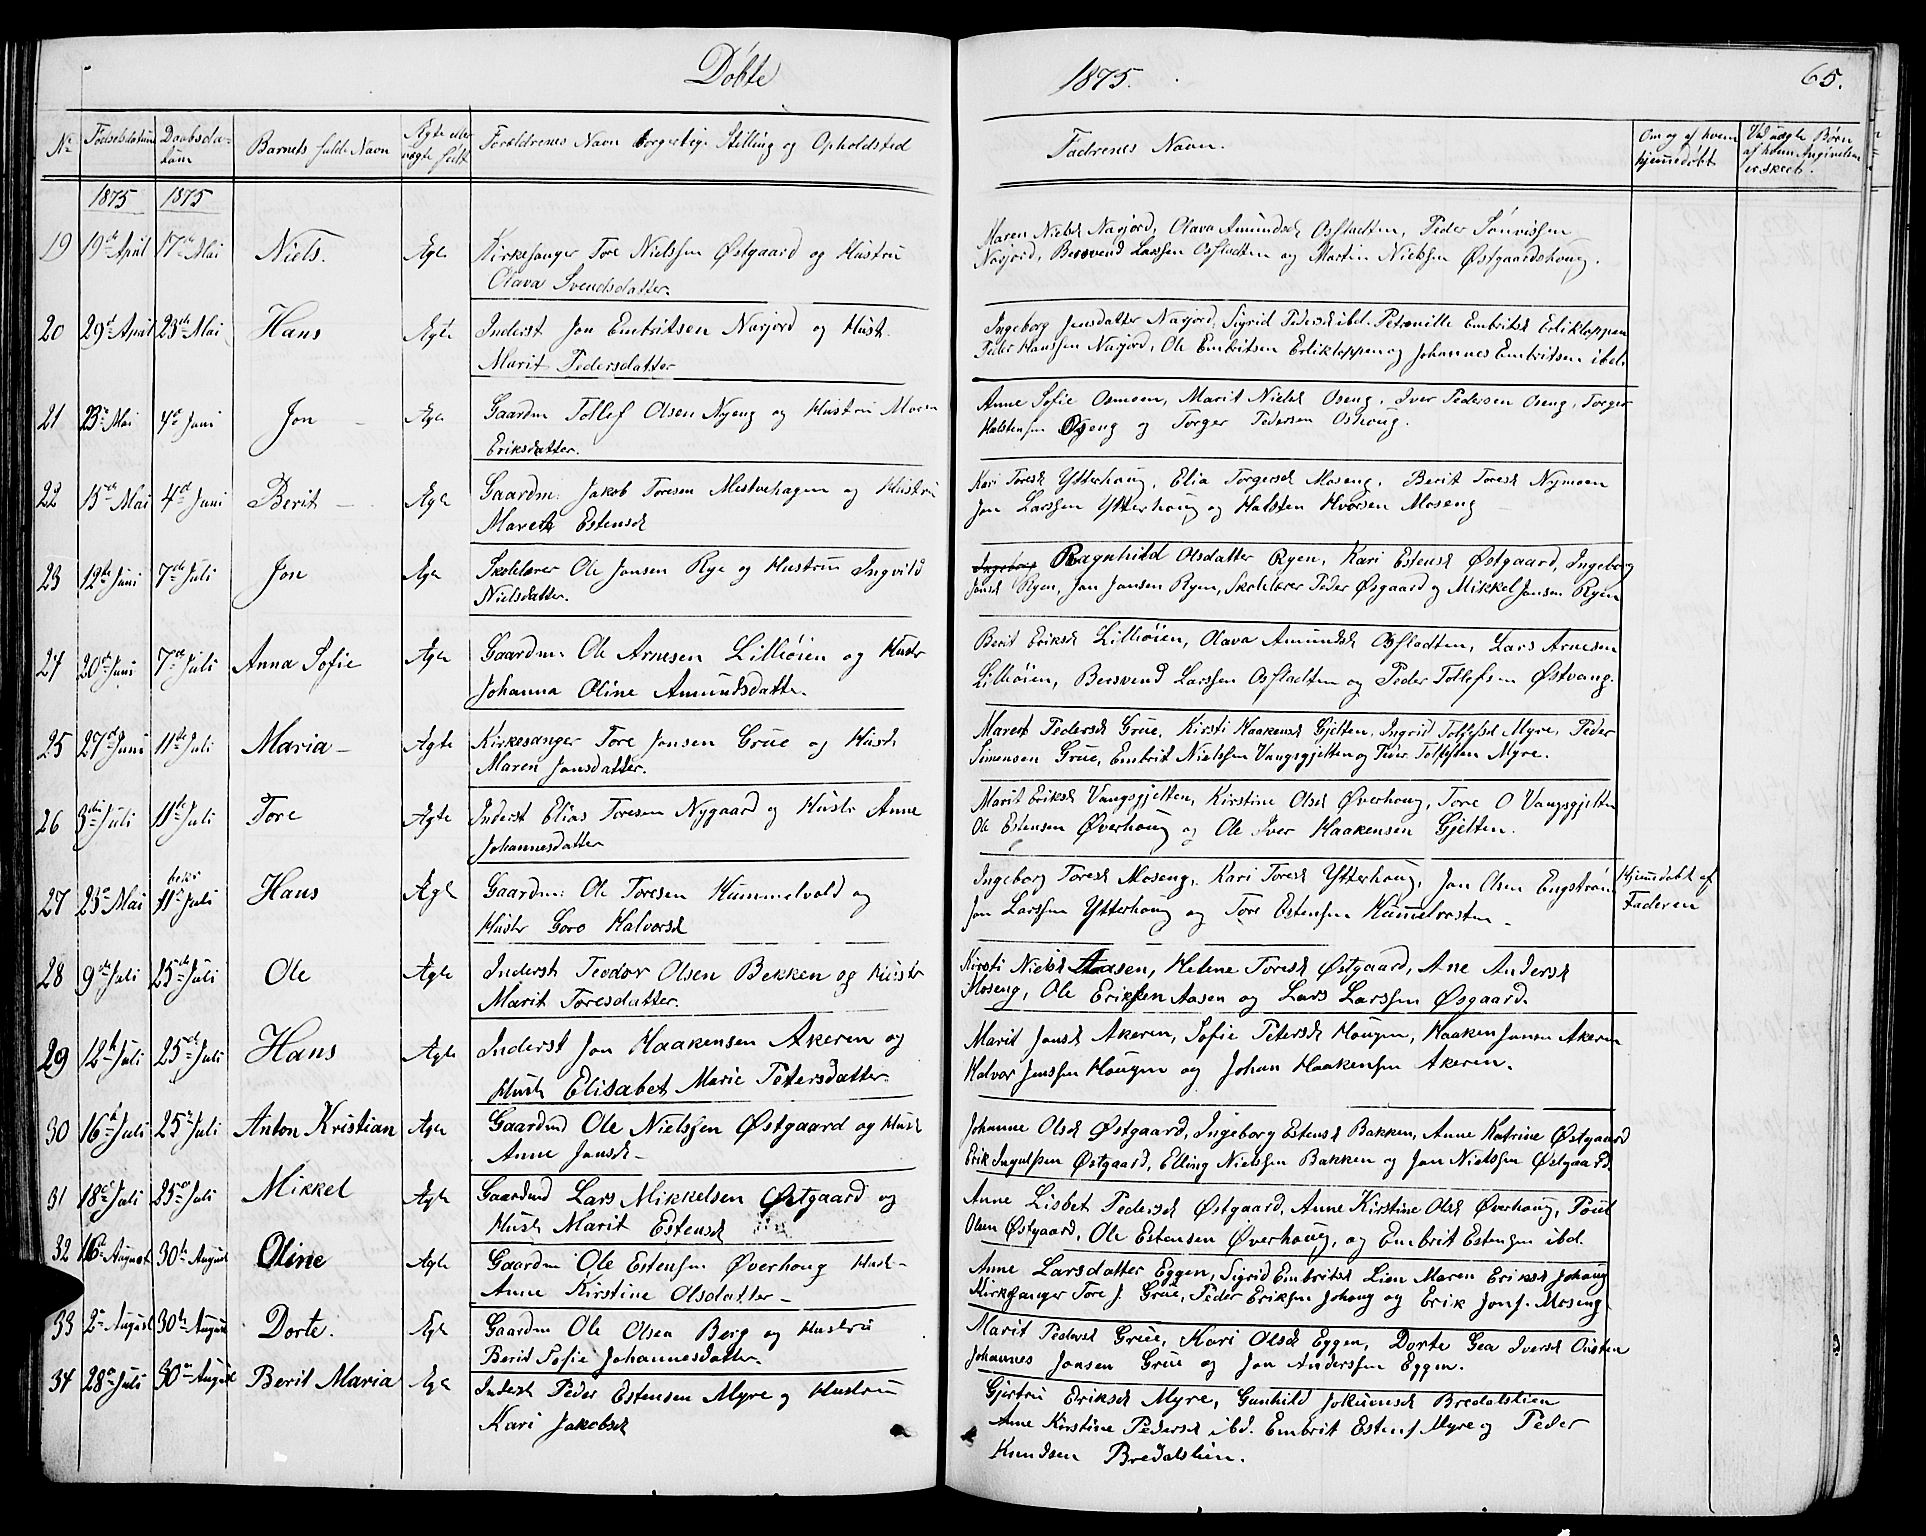 Døbte 1875. 65.
No Fødselsdatum Daabsdatum Barnets fulde Navn Ægte eller uægte født Forældrenes Navn borgerlige Stilling og Opholdsted Fadrenes Navn. Om og af hvem hjemmedøbt Ved uægte Børn af hvem Angivelsen er skeet.
1875 1875
19 19de April 17de Mai Niels. Ægte Kirkesanger Tore Nielssen Østgaard og Hustru
Olava Svendsdatter.
Maren Nielsd Narjord, Olava Amundsd Osfladten, Peder Simonssen
Narjord, Bersvend Larssen Osfladten og Martin Nielssen Østgaardshoug.
20 29de April 23de Mai Hans Ægte Inderst Jon Embritsen Narjord og Hustr.
Marit Pedersdatter
Ingeborg Jonsdatter Narjord, Sigrid Pedersd ibd. Petronille Embritsd Erlikloppen
Peder Hanssen Narjord, Ole Embritsen Erlikloppen og Johannes Embritsen ibd.
21 23de Mai 4de Juni Jon Ægte Gaardm Tollef Olsen Nyeng og Hustru Maren
Eriksdatter.
Anne Sofie Osmoen, Marit Nielsd Oseng, Iver Pedersen Oseng, Torger
Halstensen Oseng og Torger Pedersen Oshoug.
22 15de Mai 4de Juni Berit Ægte Gaardm: Jakob Toresen Mestvehagen og Hustru
Maret Estensd
Kari Toresd Ytterhoug, Elia Torgersd Moseng, Berit Toresd Nymoen
Jon Larssen Ytterhoug og Halsten Hvorsen Moseng
23 12te Juni 7de Juli Jon Ægte Skolelærer Ole Jonsen Rye og Hustru Ingvild
Nielsdatter.
Ingeborg Ragnhild Olsdatter Ryen, Kari Estensd Østgaard, Ingeborg
Jonsd Ryen, Jon Jonsen Ryen, Skolelærer Peder Øsgaard og Mikkel Jonsen Ryen
24 20de Juni 7de Juli Anna Sofie Ægte Gaardm: Ole Arnesen Lilleøien og Hustr
Johanna Oline Amundsdatter.
Berit Eriksd Lilleøien, Olava Amundsd Osfladten, Lars Arnesen
Lilleøien, Bersvend Larssen Osfladten og Peder Tollefsen Østvang.
25 27de Juni 11te Juli Maria Ægte Kirkesanger Tore Jonsen Grue og Hustr
Maren Jonsdatter.
Maret Pedersd Grue, Kirsti Haakensd Gjelten, Ingrid Tollefsd Myre, Peder
Simensen Grue, Embrit Nielssen Vangsgjelten og Peder Tollefsen Myre.
26 3die Juli 11te Juli Tore Ægte Inderst Elias Toresen Nygaard og Hustr Anne
Johannesdatter
Marit Eriksd Vangsgjelten, Kirstine Olsd Øverhoug, Tore O Vangsgjelten
Ole Estensen Øverhoug og Ole Iver Haakensen Gjelten.
27 23de Mai bekr 11te Juli Hans Ægte Gaardm: Ole Toresen Hummelvold og
Hustr Goro Halvorsd
Ingeborg Toresd Moseng, Kari Toresd Ytterhoug, Jon Olsen Engstrøm
Jon Larssen Ytterhoug og Tore Estensen Hummelvosten
Hjemmedøbt af
Faderen
28 9de Juli 25de Juli Ole Ægte Inderst Teodor Olsen Bekken og Hustr
Marit Toresdatter.
Kirsti Nielsd Aasen, Helene Toresd Østgaard, Ane Andersd
Moseng, Ole Eriksen Aasen og Lars Larssen Øsgaard.
29 12te Juli 25de Juli Hans Ægte Inderst Jon Haakensen Akeren og
Hustr Elisabet Marie Petersdatter.
Marit Jonsd Akeren, Sofie Petersd Hougen, Haaken Jonsen Akeren
Halvor Jenssen Hougen og Johan Haakensen Akeren.
30 16de Juli 25de Juli Anton Kristian Ægte Gaardmd Ole Nielssen Østgaard og Hustr
Anne Jonsd
Johanne Olsd Østgaard, Ingeborg Estensd Bakken, Anne Katrine Østgaard
Erik Ingulfsen Østgaard, Elling Nielssen Bakken og Jon Nielssen Østgaard.
31 18de Juli 25de Juli Mikkel Ægte Gaardmd Lars Mikkelsen Østgaard og
Hustr Marit Estensd
Anne Lisbet Pedersd Østgaard, Anne Kirstine Olsd Øverhoug, Poul
Olsen Østgaard, Ole Estensen Øverhoug, og Embrit Estensen ibd.
32 16de August 30te August Oline Ægte Gaardm Ole Estensen Øverhoug Hust
Anne Kirstine Olsdatter
Anne Larsdatter Eggen, Sigrid Embritsd Lien Maren Eriksd Johoug
Kirkesanger Tore J. Grue, Peder Eriksen Johoug og Erik Jons. Moseng
33 2den August 30te August Dorte. Ægte Gaardm Ole Olsen Berg og Hustru
Berit Sofie Johannesdatter.
Marit Pedersd Grue, Kari Olsd Eggen, Dorte Gea Iversd
Johannes Jonsen Grue og Jon Anderssen Eggen.
34 28de Juli 30te August Berit Maria Ægte Inderst Peder Estensen Myre og Hustru
Kari Jakobsd
Gjertru Eriksd Myre, Gunhild Jokumsd Bredalslien
Anne Kirstine Pedersd ibd. Embrit Estens. Myre og Peder
Knudsen Bredalslien.